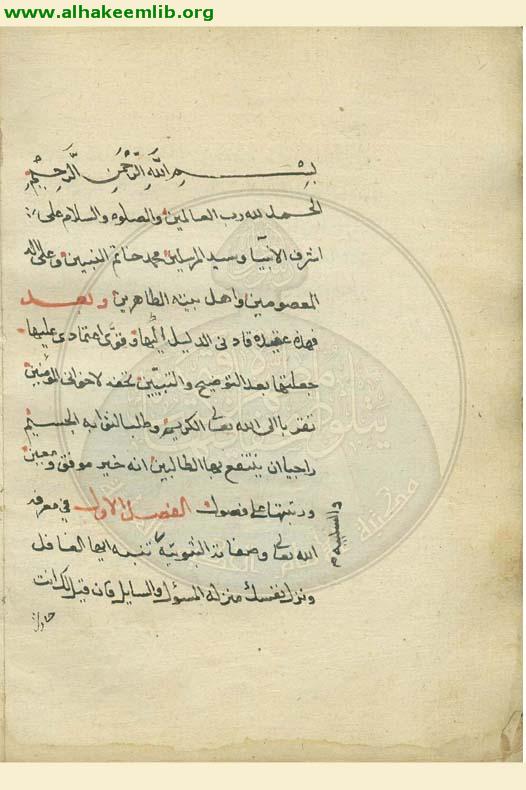 www.alhakeemlib.org
بسم الله الرحمن الرحيم
الحمد لله رب العالمين والصلوة والسلام على
اشرف الانبيآ وسيد المرسلين محمد خاتم النبيين وعلى اله
المعصومين واهل بيته الطاهرين وبعد
فهذه عقيده قادنى الدليل اليها وقوى اعتمادى عليها
جعلتها بعد التوضيح والتبيين تحفه لاخوانى المؤمنين
تقربا الى الله تعالى الكريم وطلبا لثوابه الجسيم
راجيا ان ينتفع بها الطالبين انه خير موفق ومعين
ورتبتها على فصول الفصل الاول فى معرفه
الله تعالى وصفاته الثبوتيه تنبه ايها العاقل
ونزل نفسك منزله المسؤل والسايل فان قيل لك انت
والسلبيه
حادث